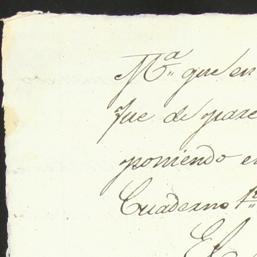 M.ª que en
fue de pare
poniendo e
Cuaderno 1º
El